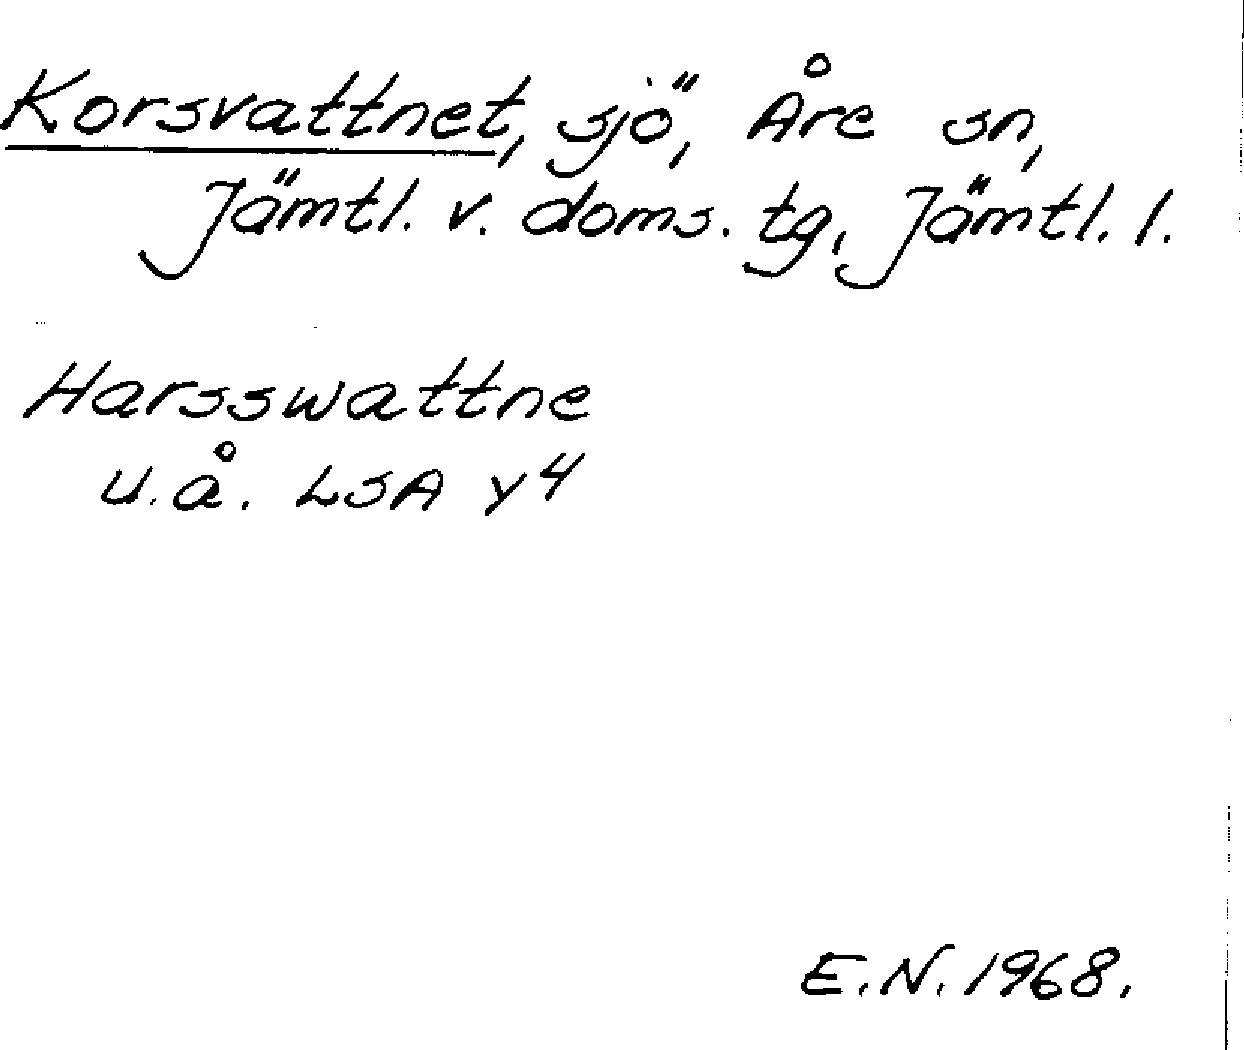 Korsvattnet, sjö, Åre sn,
Jämtl. v. doms. tg, Jämtl. l.
Harsswattne
u.å. LSA Y4
E.N. 1968.